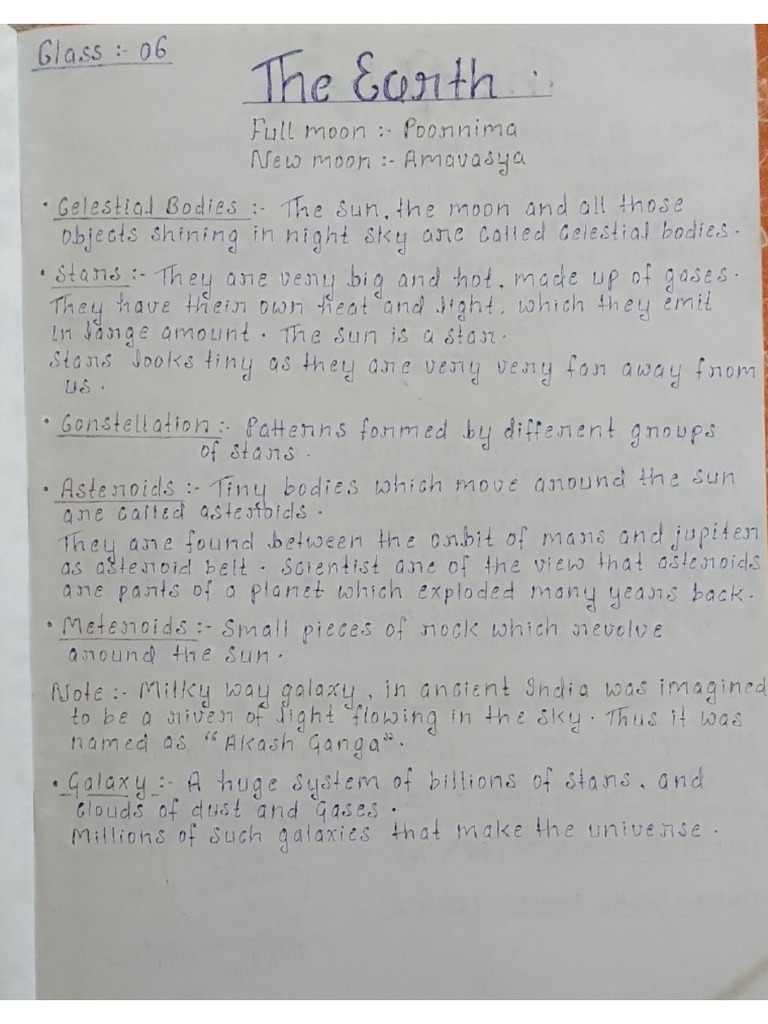 Class :- 06
The Earth
Full moon :- Poornnima
New moon :- Amavasya
• Celestial Bodies :- The Sun, the moon and all those
objects shining in night sky are called celestial bodies.
• Stars :- They are very big and hot, made up of gases.
They have their own heat and light, which they emit
in large amount. The sun is a star.
Stars looks tiny as they are very very far away from
us.
• Constellation :- Patterns formed by different groups
of stars.
• Asteroids :- Tiny bodies which move around the sun
are called asteroids.
They are found between the orbit of mars and jupiter
as asteroid belt. Scientist are of the view that asteroids
are parts of a planet which exploded many years back.
• Meteroids :- Small pieces of rock which revolve
around the sun.
Note :- Milky way galaxy, in ancient India was imagined
to be a river of light flowing in the sky. Thus it was
named as "Akash Ganga".
• Galaxy :- A huge system of billions of stars, and
clouds of dust and Gases.
Millions of such galaxies that make the universe.